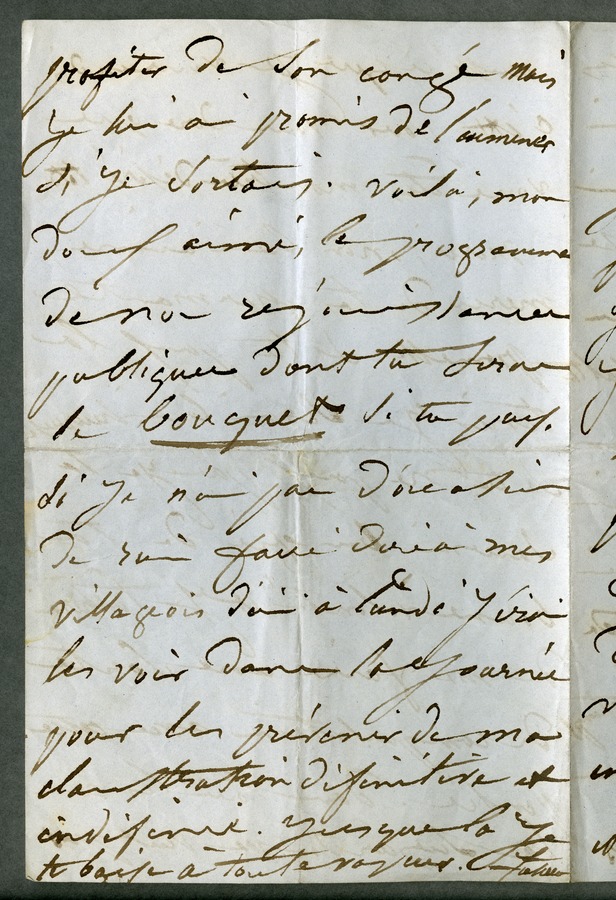 profiter de son congé mais
je lui ai promis de l'aumener
si je sortais. Voilà, mon
doux aimé, le programme
de nos rejouissances
publiques dont tu seras
le bouquet si tu peux.
Si je n'ai pas d'occasion
de faire dire à mes
villageois d'ici à lundi j'irai
les voir dans la journée
pour les prévenir de ma
claustration difinitive et
indifinie. Jusque là je
te baise à toute vapeur. Juliette